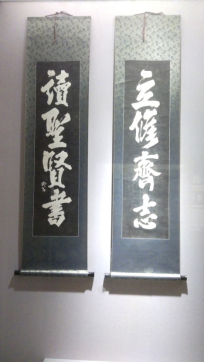 立脩齊志
讀聖賢書